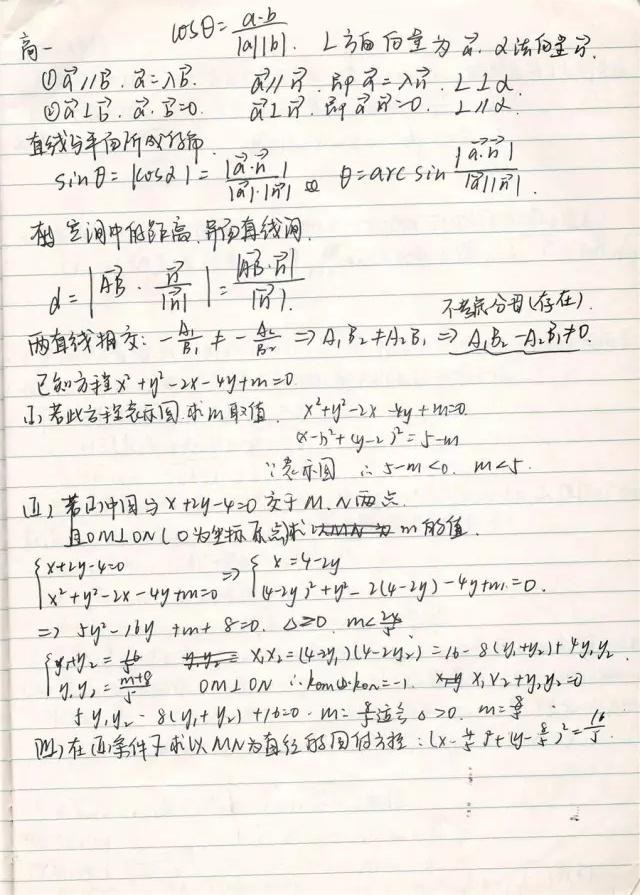 cosθ = a·b / |a||b| . L方向向量为 a⃗. α法向量 n⃗.
高一
① a⃗ // b⃗ . a⃗ = λb⃗. a⃗ // n⃗ . 即 a⃗ = λn⃗ . L⊥α.
② a⃗ ⊥ b⃗ . a⃗ · b⃗ = 0. a⃗ ⊥ n⃗ . 即 a⃗ n⃗ = 0. L // α.
直线与平面所成的角
sinθ = |cosα| = |a⃗·n⃗| / |a⃗|·|n⃗| θ = arc sin |a⃗·n⃗| / |a⃗||n⃗| .
空间中的距离、异面直线间.
d = | AB⃗ · n⃗/|n⃗| | = |AB⃗·n⃗| / |n⃗| .
不考虑分母(存在).
两直线相交: -A₁/B₁ ≠ -A₂/B₂ ⇒ A₁B₂ ≠ A₂B₁ ⇒ A₁B₂ - A₂B₁ ≠ 0.
已知方程 x² + y² - 2x - 4y + m = 0
(I) 若此方程表示圆.求m取值. x² + y² - 2x - 4y + m = 0.
(x-1)² + (y-2)² = 5 - m
∵表示圆 ∴ 5 - m < 0. m < 5.
(II) 若(I)中圆与 x + 2y - 4 = 0 交于 M、N两点
且OM⊥ON (O为坐标原点)求 以MN为 m 的值.
{ x + 2y - 4 = 0 ⇒ { x = 4 - 2y
x² + y² - 2x - 4y + m = 0 (4-2y)² + y² - 2(4-2y) - 4y + m = 0.
⇒ 5y² - 16y + m + 8 = 0. △≥0. m < 24/5
{ y₁ + y₂ = 16/5 x₁x₂ = (4-2y₁)(4-2y₂) = 16 - 8(y₁+y₂) + 4y₁y₂
y₁y₂ = m+8/5 OM⊥ON ∴ kom·kon = -1. x₁x₂ + y₁y₂ = 0
5y₁y₂ - 8(y₁+y₂) + 16 = 0 · m = 8/5 △ > 0. m = 8/5 .
(III) 在(II)条件下求以MN为直径的圆的方程: (x - 4/5)² + (y - 8/5)² = 16/5